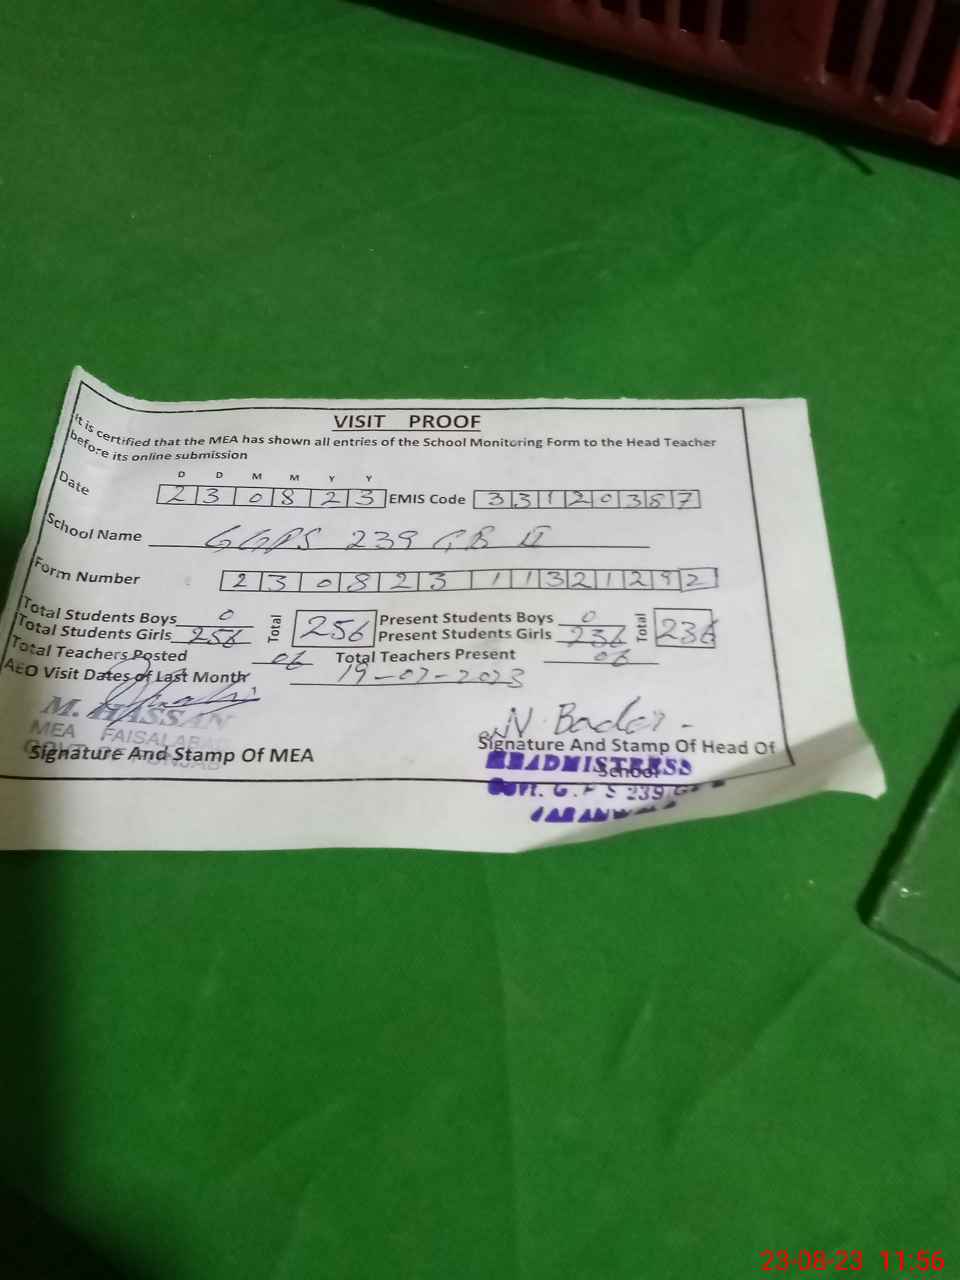 VISIT PROOF
It is certified that the MEA has shown all entries of the School Monitoring Form to the Head Teacher
before its online submission
D D M M Y Y
Date 2 3 0 8 2 3 EMIS Code 3 3 1 2 0 3 5 7
School Name GGPS 239 GB II
Form Number 2 3 0 8 2 3 1 1 3 2 1 2 9 2
Total Students Boys 0 Total 256 Present Students Boys 0 Total 236
Total Students Girls 256 Present Students Girls 236
Total Teachers Posted 06 Total Teachers Present 06
AEO Visit Dates of Last Month 19-07-2023
M. HASSAN
MEA FAISALABAD
GOVT OF PUNJAB
Signature And Stamp Of MEA
N. Bader
Signature And Stamp Of Head Of
School
HEADMISTRESS
Govt. G. P S 239 G
JARANWALA
23-08-23 11:56